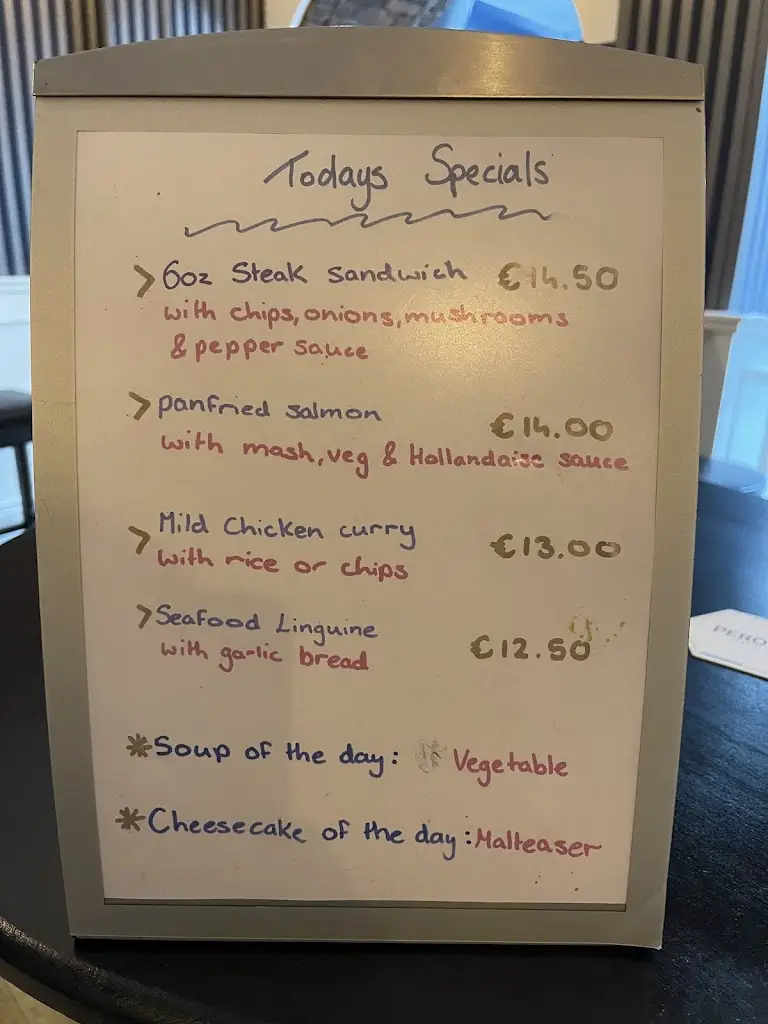 Todays Specials
> 6oz Steak Sandwich €14.50
with chips, onions, mushrooms
& pepper sauce
> panfried salmon €14.00
with mash, veg & Hollandaise sauce
> Mild Chicken curry €13.00
with rice or chips
> Seafood Linguine €12.50
with garlic bread
PERO
* Soup of the day: Vegetable
* Cheesecake of the day: Malteaser